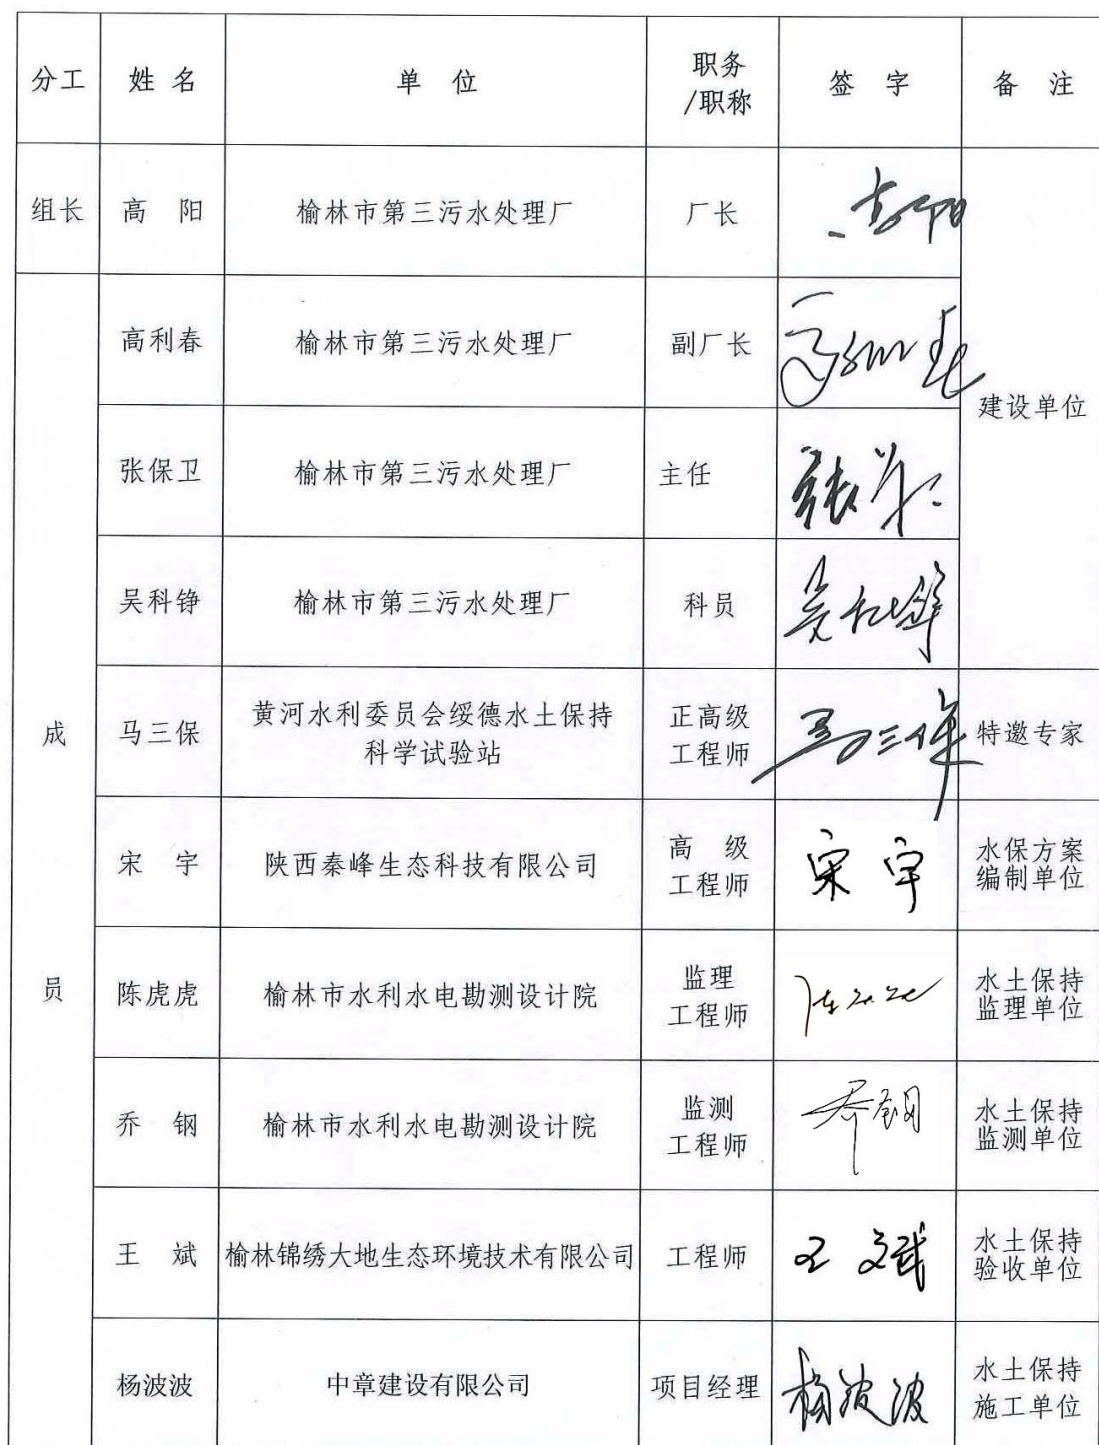 分工 姓名 单位 职务/职称 签字 备注
组长 高阳 榆林市第三污水处理厂 厂长 高阳 建设单位
成员 高利春 榆林市第三污水处理厂 副厂长 高利春
张保卫 榆林市第三污水处理厂 主任
吴科铮 榆林市第三污水处理厂 科员 吴科铮
马三保 黄河水利委员会绥德水土保持科学试验站 正高级工程师 马三保 特邀专家
宋宇 陕西秦峰生态科技有限公司 高级工程师 宋宇 水保方案编制单位
陈虎虎 榆林市水利水电勘测设计院 监理工程师 水土保持监理单位
乔钢 榆林市水利水电勘测设计院 监测工程师 乔钢 水土保持监测单位
王斌 榆林锦绣大地生态环境技术有限公司 工程师 王斌 水土保持验收单位
杨波波 中章建设有限公司 项目经理 杨波波 水土保持施工单位